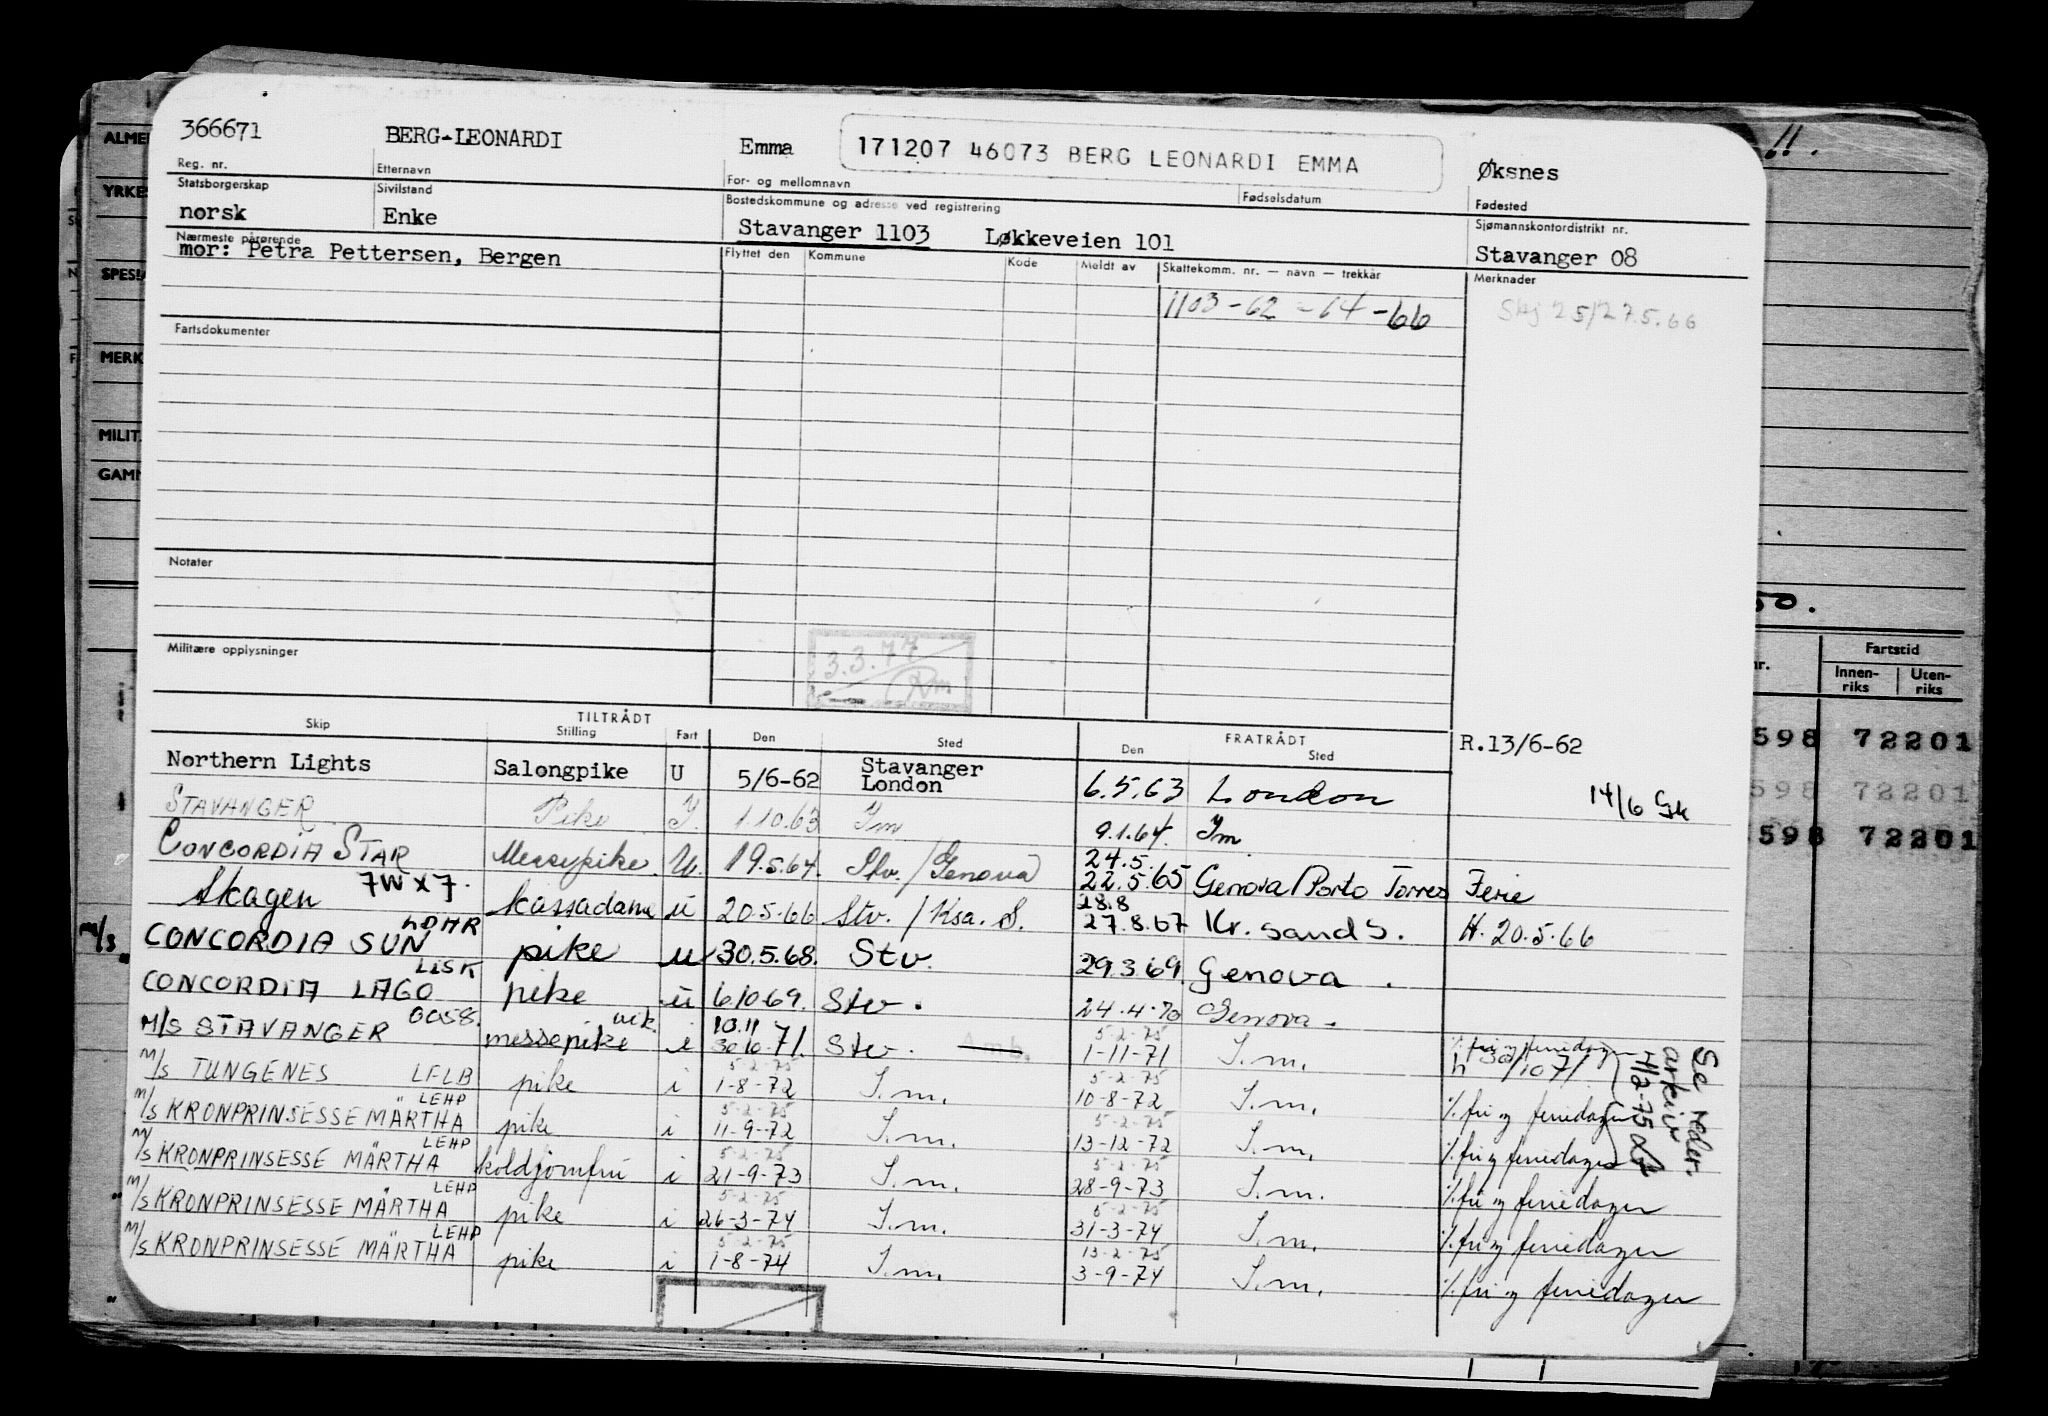 366671 BERG-LEONARDI Emma 171207 46073 BERG LEONARDI EMMA Øksnes
Reg. nr. Etternavn For- og mellomnavn Fødselsdatum Fødested
Statsborgerskap Sivilstand Bostedskommune og adresse ved registrering Sjømannskontordistrikt nr.
norsk Enke Stavanger 1103 Løkkeveien 101 Stavanger 08
Nærmeste pårørende Flyttet den Kommune Kode Meldt av Skattekomm. nr. — navn — trekkår Merknader
mor: Petra Pettersen, Bergen
1103-62-64-66 25/27.5.66
Fartsdokumenter
Notater
Militære opplysninger
3.3.77
TILTRÅDT FRATRÅDT
Skip Stilling Fart Den Sted Den Sted
R.13/6-62
Northern Lights Salongpike U 5/6-62 Stavanger London 6.5.63 London 14/6
STAVANGER Pike I. 1.10.63 Im 9.1.64. Im
CONCORDIA STAR Messepike. U. 19.5.64. Stv./Genova 24.5. 22.5.65 Genova/Porto Torres Ferie
Skagen 7WX7. kassadame u 20.5.66 Stv./Ksa. S. 28.8 27.8.67 Kr.sand S. H. 20.5.66
m/s CONCORDIA SUN LDHR pike u 30.5.68. Stv. 29.3.69 Genova.
CONCORDIA LAGO LISK pike u 6.10.69. Stv. 24.4.70 Genova.
M/S STAVANGER 0058. messepike vik. i 10.11 30.10.71. Stv. 5-2-75 1-11-71 I.m. %fri og feriedager h 30/10 71
M/S TUNGENES LFLB pike i 5-2-75 1-8-72 I.m. 5-2-75 10-8-72 I.m. %fri og feriedager
M/S KRONPRINSESSE MÄRTHA LEHP pike i 5-2-75 11-9-72 I.m. 5-2-75 13-12-72 I.m. %fri og feriedager
M/S KRONPRINSESSE MÄRTHA LEHP koldjomfru i 5-2-75 21-9-73 I.m. 5-2-75 28-9-73 I.m. %fri og feriedager
M/S KRONPRINSESSE MÄRTHA LEHP pike i 5-2-75 26-3-74 I.m. 5-2-75 31-3-74 I.m. %fri og feriedager
M/S KRONPRINSESSE MÄRTHA LEHP pike i 5-2-75 1-8-74 I.m. 13-2-75 3-9-74 I.m. %fri og feriedager
Se reder.
arkiv
4/2-75
ALME
YRKE
MERK
MILIT
GAM
Fartstid
Innen-riks Uten-riks
598 72201
598 72201
598 72201